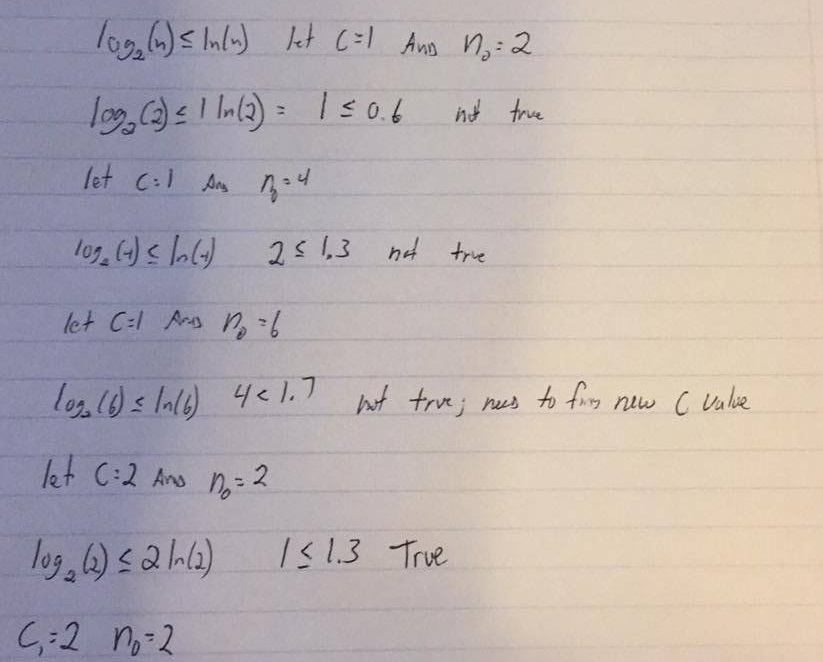 log₂(n) ≤ ln(n) let C=1 And n₀=2
log₂(2) ≤ 1 ln(2) = 1 ≤ 0.6 not true
let C=1 And n₀=4
log₂(4) ≤ ln(4) 2 ≤ 1.3 not true
let C=1 And n₀=6
log₂(6) ≤ ln(6) 4 < 1.7 not true; need to find new C value
let C=2 And n₀=2
log₂(2) ≤ 2 ln(2) 1 ≤ 1.3 True
C₁=2 n₀=2